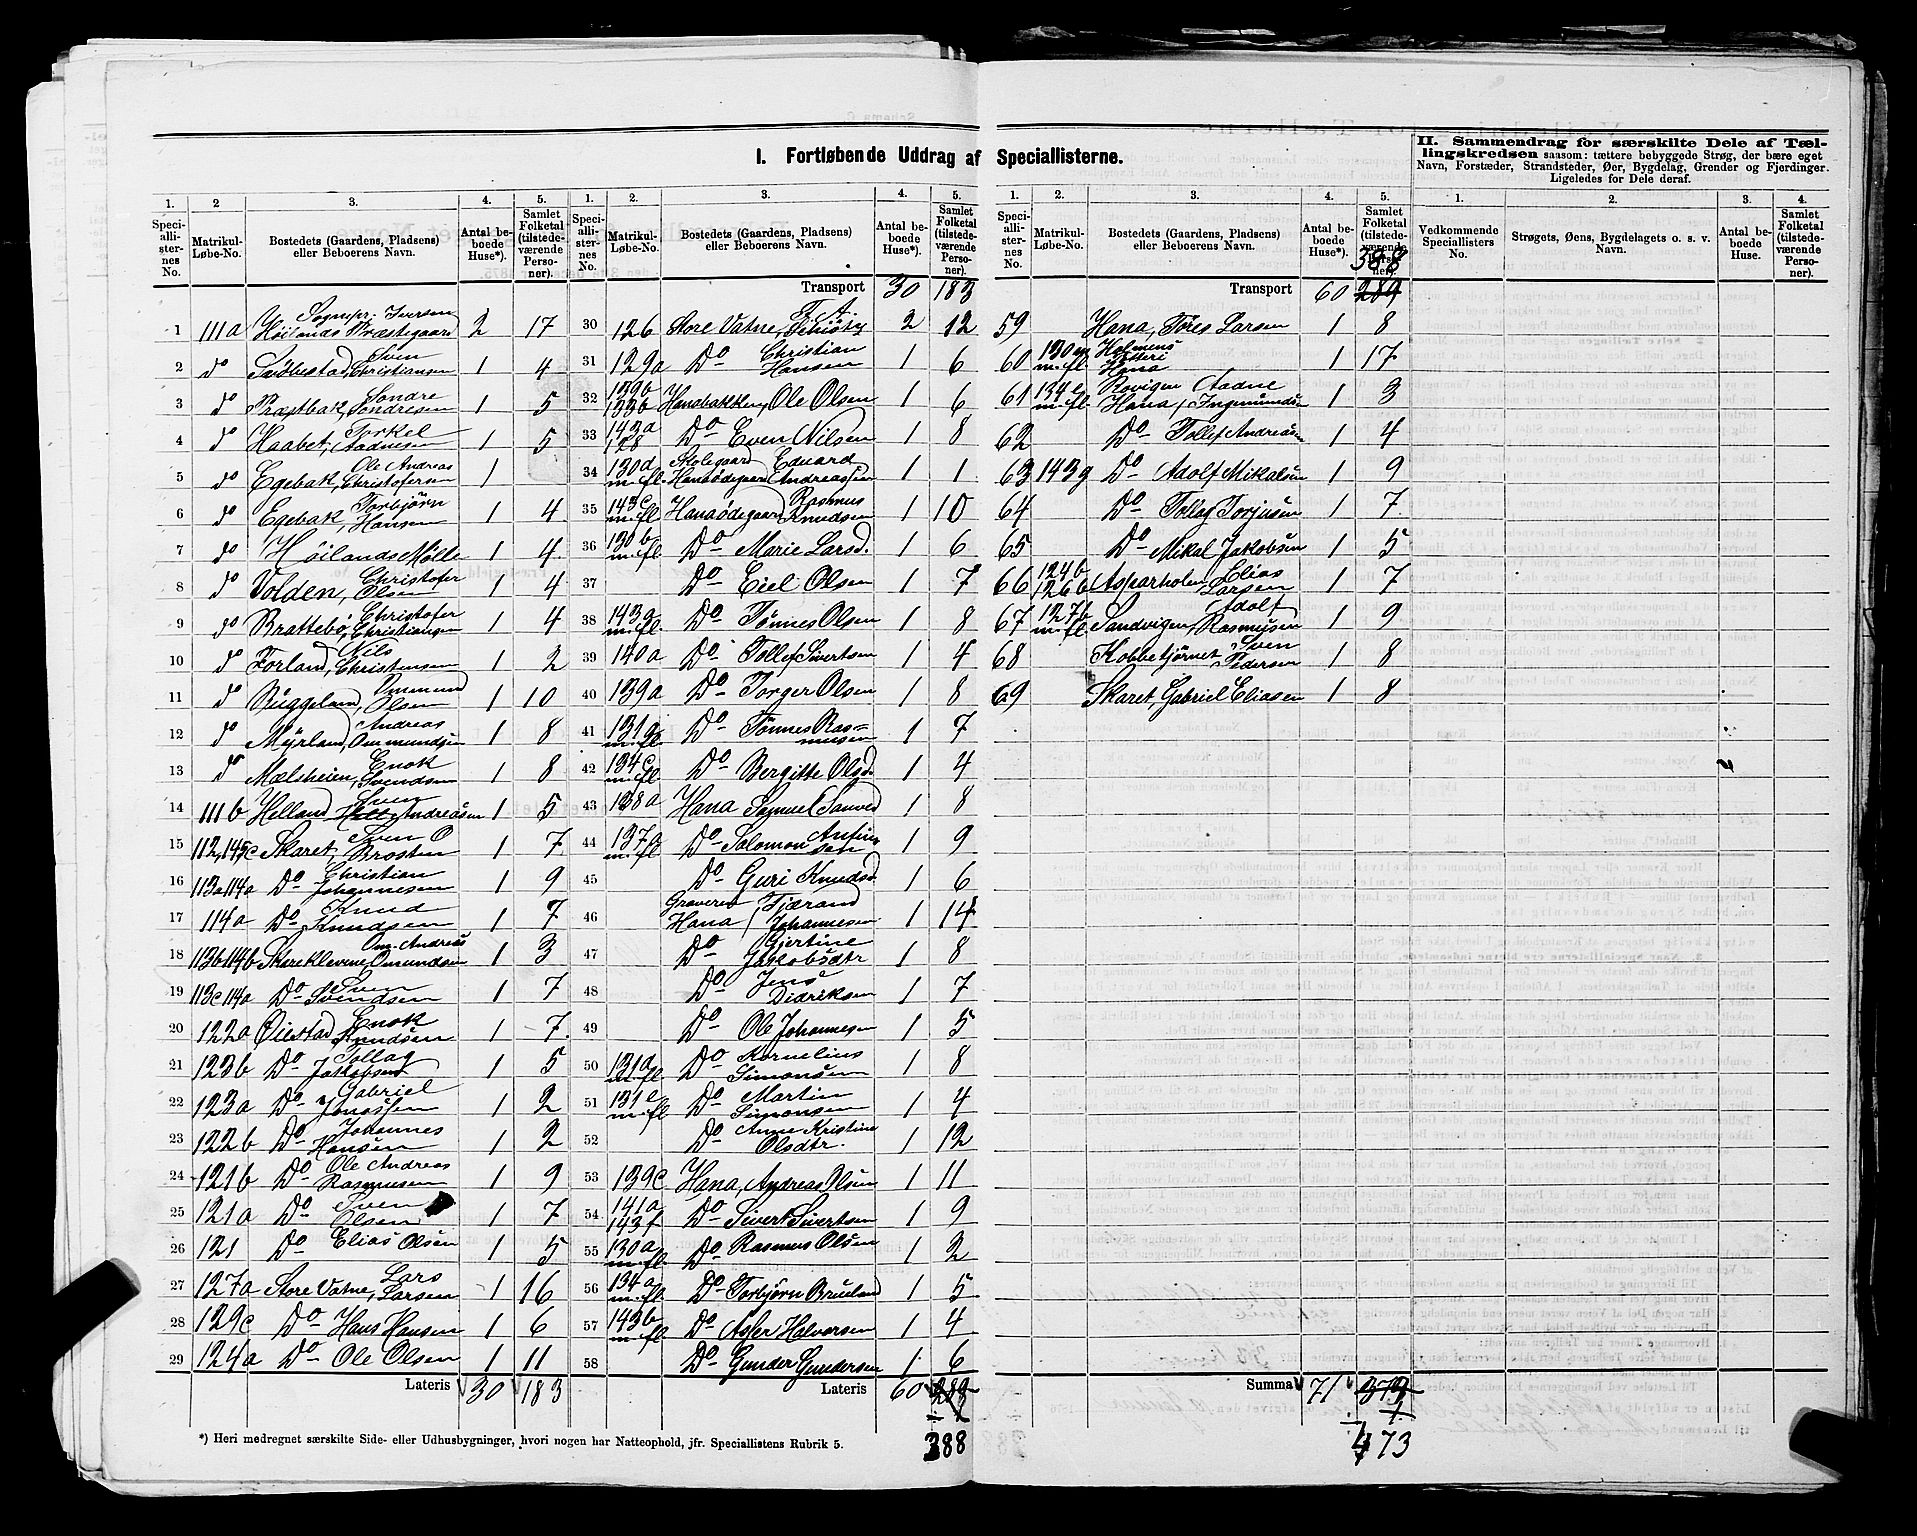 I. Fortløbende Uddrag af Speciallisterne.
II. Sammendrag for særskilte Dele af Tæl-
lingskredsen saasom: tættere bebyggede Strøg, der bære eget
Navn, Forstæder, Strandsteder, Øer, Bygdelag, Grender og Fjerdinger.
Ligeledes for Dele deraf.
1. 2 3. 4. 5.
Speciallisternes No. Matrikul-Løbe-No. Bostedets (Gaardens, Pladsens) eller Beboerens Navn. Antal beboede Huse*). Samlet Folketal (tilstedeværende Personer).
1 111a Sognepr. Iversen Høilands Præstegaard 2 17
2 do Sædbestad, Sven Christiansen 1 4
3 do Præstbak, Sondre Sondresen 1 5
4 do Haabet, Torkel Aadnesen 1 5
5 do Egebak, Ole Andreas Christofersen 1
6 do Egebak, Torbjørn Hansen 1 4
7 do Høilands Mølle 1 4
8 do Volden, Christofer Olsen 1 4
9 do Brattebø, Christofer Christiansen 1 4
10 do Forland, Nils Christensen 1 2
11 do Buggeland, Ommund Olsen 1 10
12 do Myrland, Andreas Ommundsen 1 8
13 do Mælsheien, Enok Svendsen 1 8
14 111b Helland Sven Andreasen 1 5
15 112,145c Skaret, Sven O Brosten 1 7
16 113a114a Do Christian Johannesen 1 9
17 114a Do Knud Knudsen 1 7
18 113b114b Skareklevene, Om. Andreas Omundsen 1 3
19 113c114a Do Sven Svendsen 1 7
20 122a Øiestad Enok Knudsen 1 7
21 123b Do Tollag Jakobsen 1 5
22 123a Do Gabriel Jonassen 1 2
23 122b Do Johannes Hansen 1 2
24 121b Do Ole Andreas Rasmusen 1 9
25 121a Do Sven Olsen 1 7
26 121 Do Elias Olsen 1 5
27 127a Store Vatne, Lars Larsen 1 16
28 129c Do Hans Hansen 1 6
29 124a Do Ole Olsen 1 11
Lateris 30 183
*) Heri medregnet særskilte Side- eller Udhusbygninger, hvori nogen har Natteophold, jfr. Speciallistens Rubrik 5.
1. 2. 3. 4. 5.
Speciallisternes No. Matrikul-Løbe-No. Bostedets (Gaardens, Pladsens) eller Beboerens Navn. Antal beboede Huse*). Samlet Folketal (tilstedeværende Personer).
Transport 30 183
30 126 Store Vatne, T. A. 2 12
31 129a Do Christian Hansen 1 6
32 139b 133b Hanabakken, Ole Olsen 1 6
33 143a 128 Do Even Nilsen 1 8
34 130d m.fl. Skolegaard Hanaødegaard Eduard Andreassen 1 1
35 143c m.fl Hanaødegaard Rasmus Knudsen 1 10
36 130b m.fl. Do Marie Larsd. 1 6
37 Do Eiel Olsen 1 7
38 143a m.fl. Do Tønnes Olsen 1 8
39 140a Do Tollef Sivertsen 1 4
40 139a Do Torger Olsen 1 8
41 131g m.fl. Do Tønnes Rasmusen 1 7
42 134c m.fl Do Bergitte Olsd. 1 4
43 138a Hana Samuel 1 8
44 137a m.fl Do Salomon 1 9
45 Do Guri Knudsd. 1 6
46 Graveren Hana, Tjærand Johannesen 1 14
47 Do Gjertine Jakobsdtr 1 8
48 Do Jens Didriksen 1 7
49 Do Ole Johannesen 1 5
50 131a m.fl. Do Kornelius Simonsen 1 8
51 131e m.fl Do Martin Simonsen 1 4
52 Do Anne Kristine Olsdtr. 1 12
53 139c Hana, Andreas Olsen 1 11
54 141a 143f Do Sivert Sivertsen 1 9
55 130a m.fl. Do Rasmus Olsen 1 2
56 134a m.fl Do Torbjørn Brueland 1 5
57 143b m.fl Do Asser Halvorsen 1 4
58 Do Gunder Gundersen 1 6
Lateris 60
388
1. 2. 3. 4. 5.
Speciallisternes No. Matrikul-Løbe-No. Bostedets (Gaardens, Pladsens) eller Beboerens Navn. Antal beboede Huse*). Samlet Folketal (tilstedeværende Personer).
388
Transport 60 289
59 Hana, Tøres Larsen 1 8
60 130m m.fl Holmens Hana 1 17
61 134e m.fl Rovigen Hana, Aadne Ingemundsen 1 3
62 Do Tollef Andreasen 1 4
63 143g Do Adolf Mikalsen 1 9
64 Do Tollag Torjusen 1 7
65 Do Mikal Jakobsen 1 5
66 124b 126b Asparholen, Elias Larsen 1 7
67 127b m.fl Sandvigen, Adolf Rasmusen 1 9
68 Kobbetjørnet Sven Pedersen 1 8
69 Skaret, Gabriel Eliasen 1 8
Summa 71 373
473
1. 2. 3. 4.
Vedkommende Speciallisters No. Strøgets, Øens, Bygdelagets o. s. v. Navn. Antal beboede Huse. Samlet Folketal (tilstedeværende Personer).